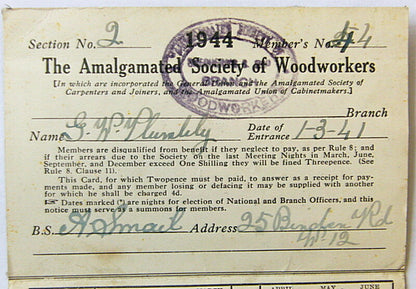 Section No. 2 1944 Member's No. 44
The Amalgamated Society of Woodworkers
[In which are incorporated the General Union and the Amalgamated Society of
Carpenters and Joiners, and the Amalgamated Union of Cabinetmakers.]
BRANCH
WOODWORKERS
Branch
Name G. W. Plumbly Date of Entrance 1-3-41
Members are disqualified from benefit if they neglect to pay, as per Rule 8; and
if their arrears due to the Society on the last Meeting Nights in March, June,
September, and December exceed One Shilling they will be fined Threepence. (See
Rule 8, Clause 11).
This Card, for which Twopence must be paid, to answer as a receipt for pay-
ments made, and any member losing or defacing it may be supplied with another
for which he shall be charged 4d.
☞ Dates marked are nights for election of National and Branch Officers, and this
notice must serve as a summons for members.
B.S. A Smail Address 25 Rd
W. 12
APRIL MAY JUNE